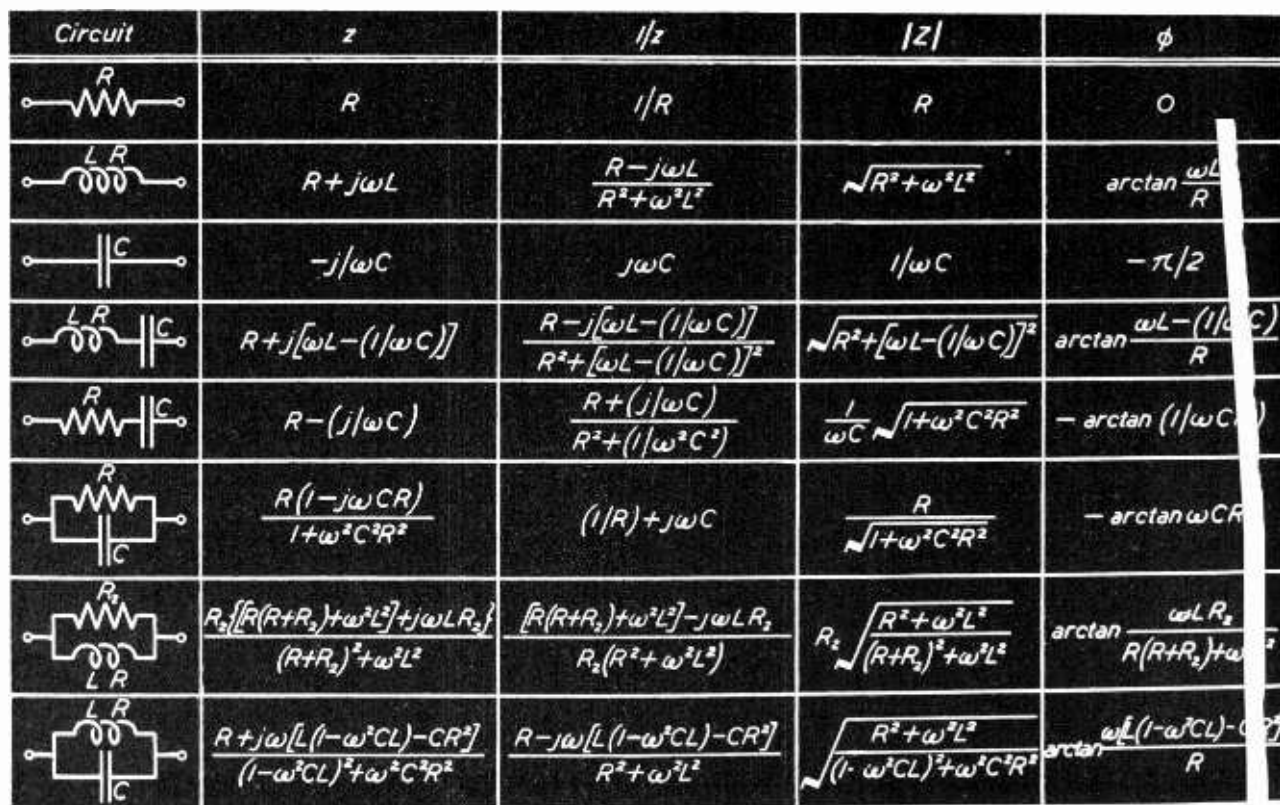 Circuit z 1/z |Z| φ
R R 1/R R 0
L R R+jωL (R-jωL)/(R²+ω²L²) √(R²+ω²L²) arctan ωL/R
C -j/ωC jωC 1/ωC -π/2
L R C R+j[ωL-(1/ωC)] (R-j[ωL-(1/ωC)])/(R²+[ωL-(1/ωC)]²) √(R²+[ωL-(1/ωC)]²) arctan (ωL-(1/ωC))/R
R C R-(j/ωC) (R+(j/ωC))/(R²+(1/ω²C²)) 1/ωC √(1+ω²C²R²) - arctan (1/ωC
R C R(1-jωCR)/(1+ω²C²R²) (1/R)+jωC R/√(1+ω²C²R²) - arctan ωCR
R₂ L R R₂{[R(R+R₂)+ω²L²]+jωLR₂}/((R+R₂)²+ω²L²) ([R(R+R₂)+ω²L²]-jωLR₂)/(R₂(R²+ω²L²)) R₂√((R²+ω²L²)/((R+R₂)²+ω²L²)) arctan ωLR₂/(R(R+R₂)+ω ²)
L R C (R+jω[L(1-ω²CL)-CR²])/((1-ω²CL)²+ω²C²R²) (R-jω[L(1-ω²CL)-CR²])/(R²+ω²L²) √((R²+ω²L²)/((1-ω²CL)²+ω²C²R²)) arctan ω[L(1-ω²CL)-CR²]/R